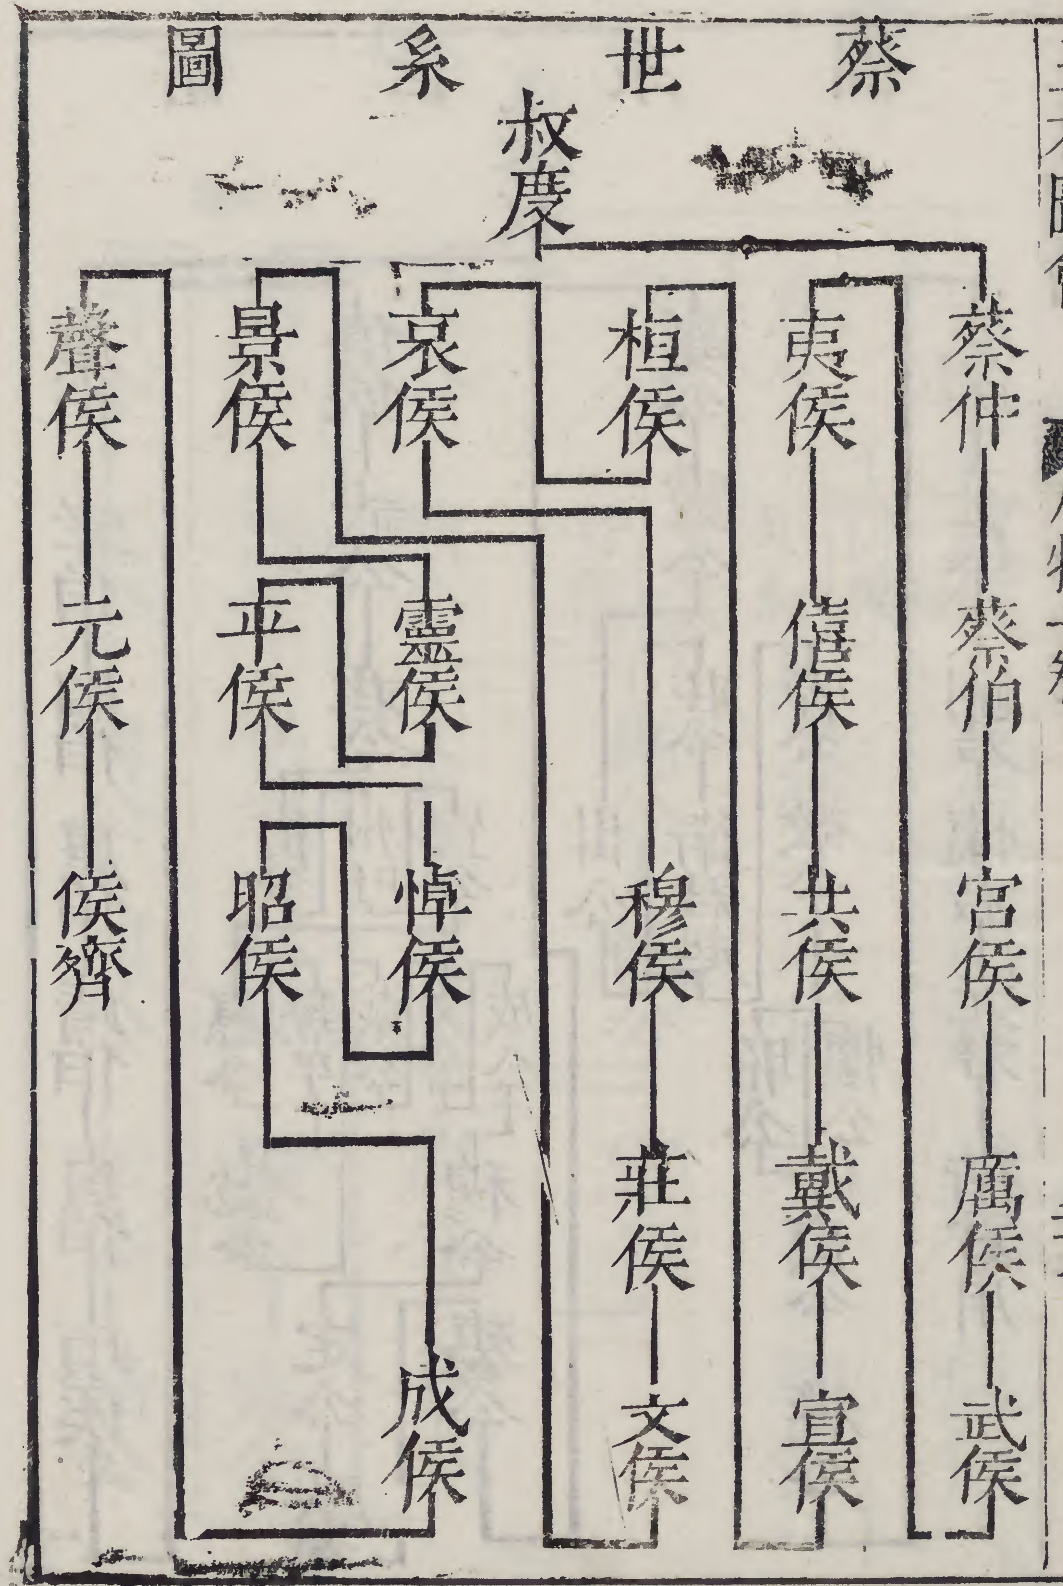 蔡世系圖
叔慶
蔡仲
蔡伯
宮侯
厲侯
武侯
夷侯
僖侯
共侯
戴侯
宣侯
桓侯
哀侯
穆侯
莊侯
文侯
景侯
靈侯
平侯
悼侯
昭侯
成侯
聲侯
元侯
侯齊